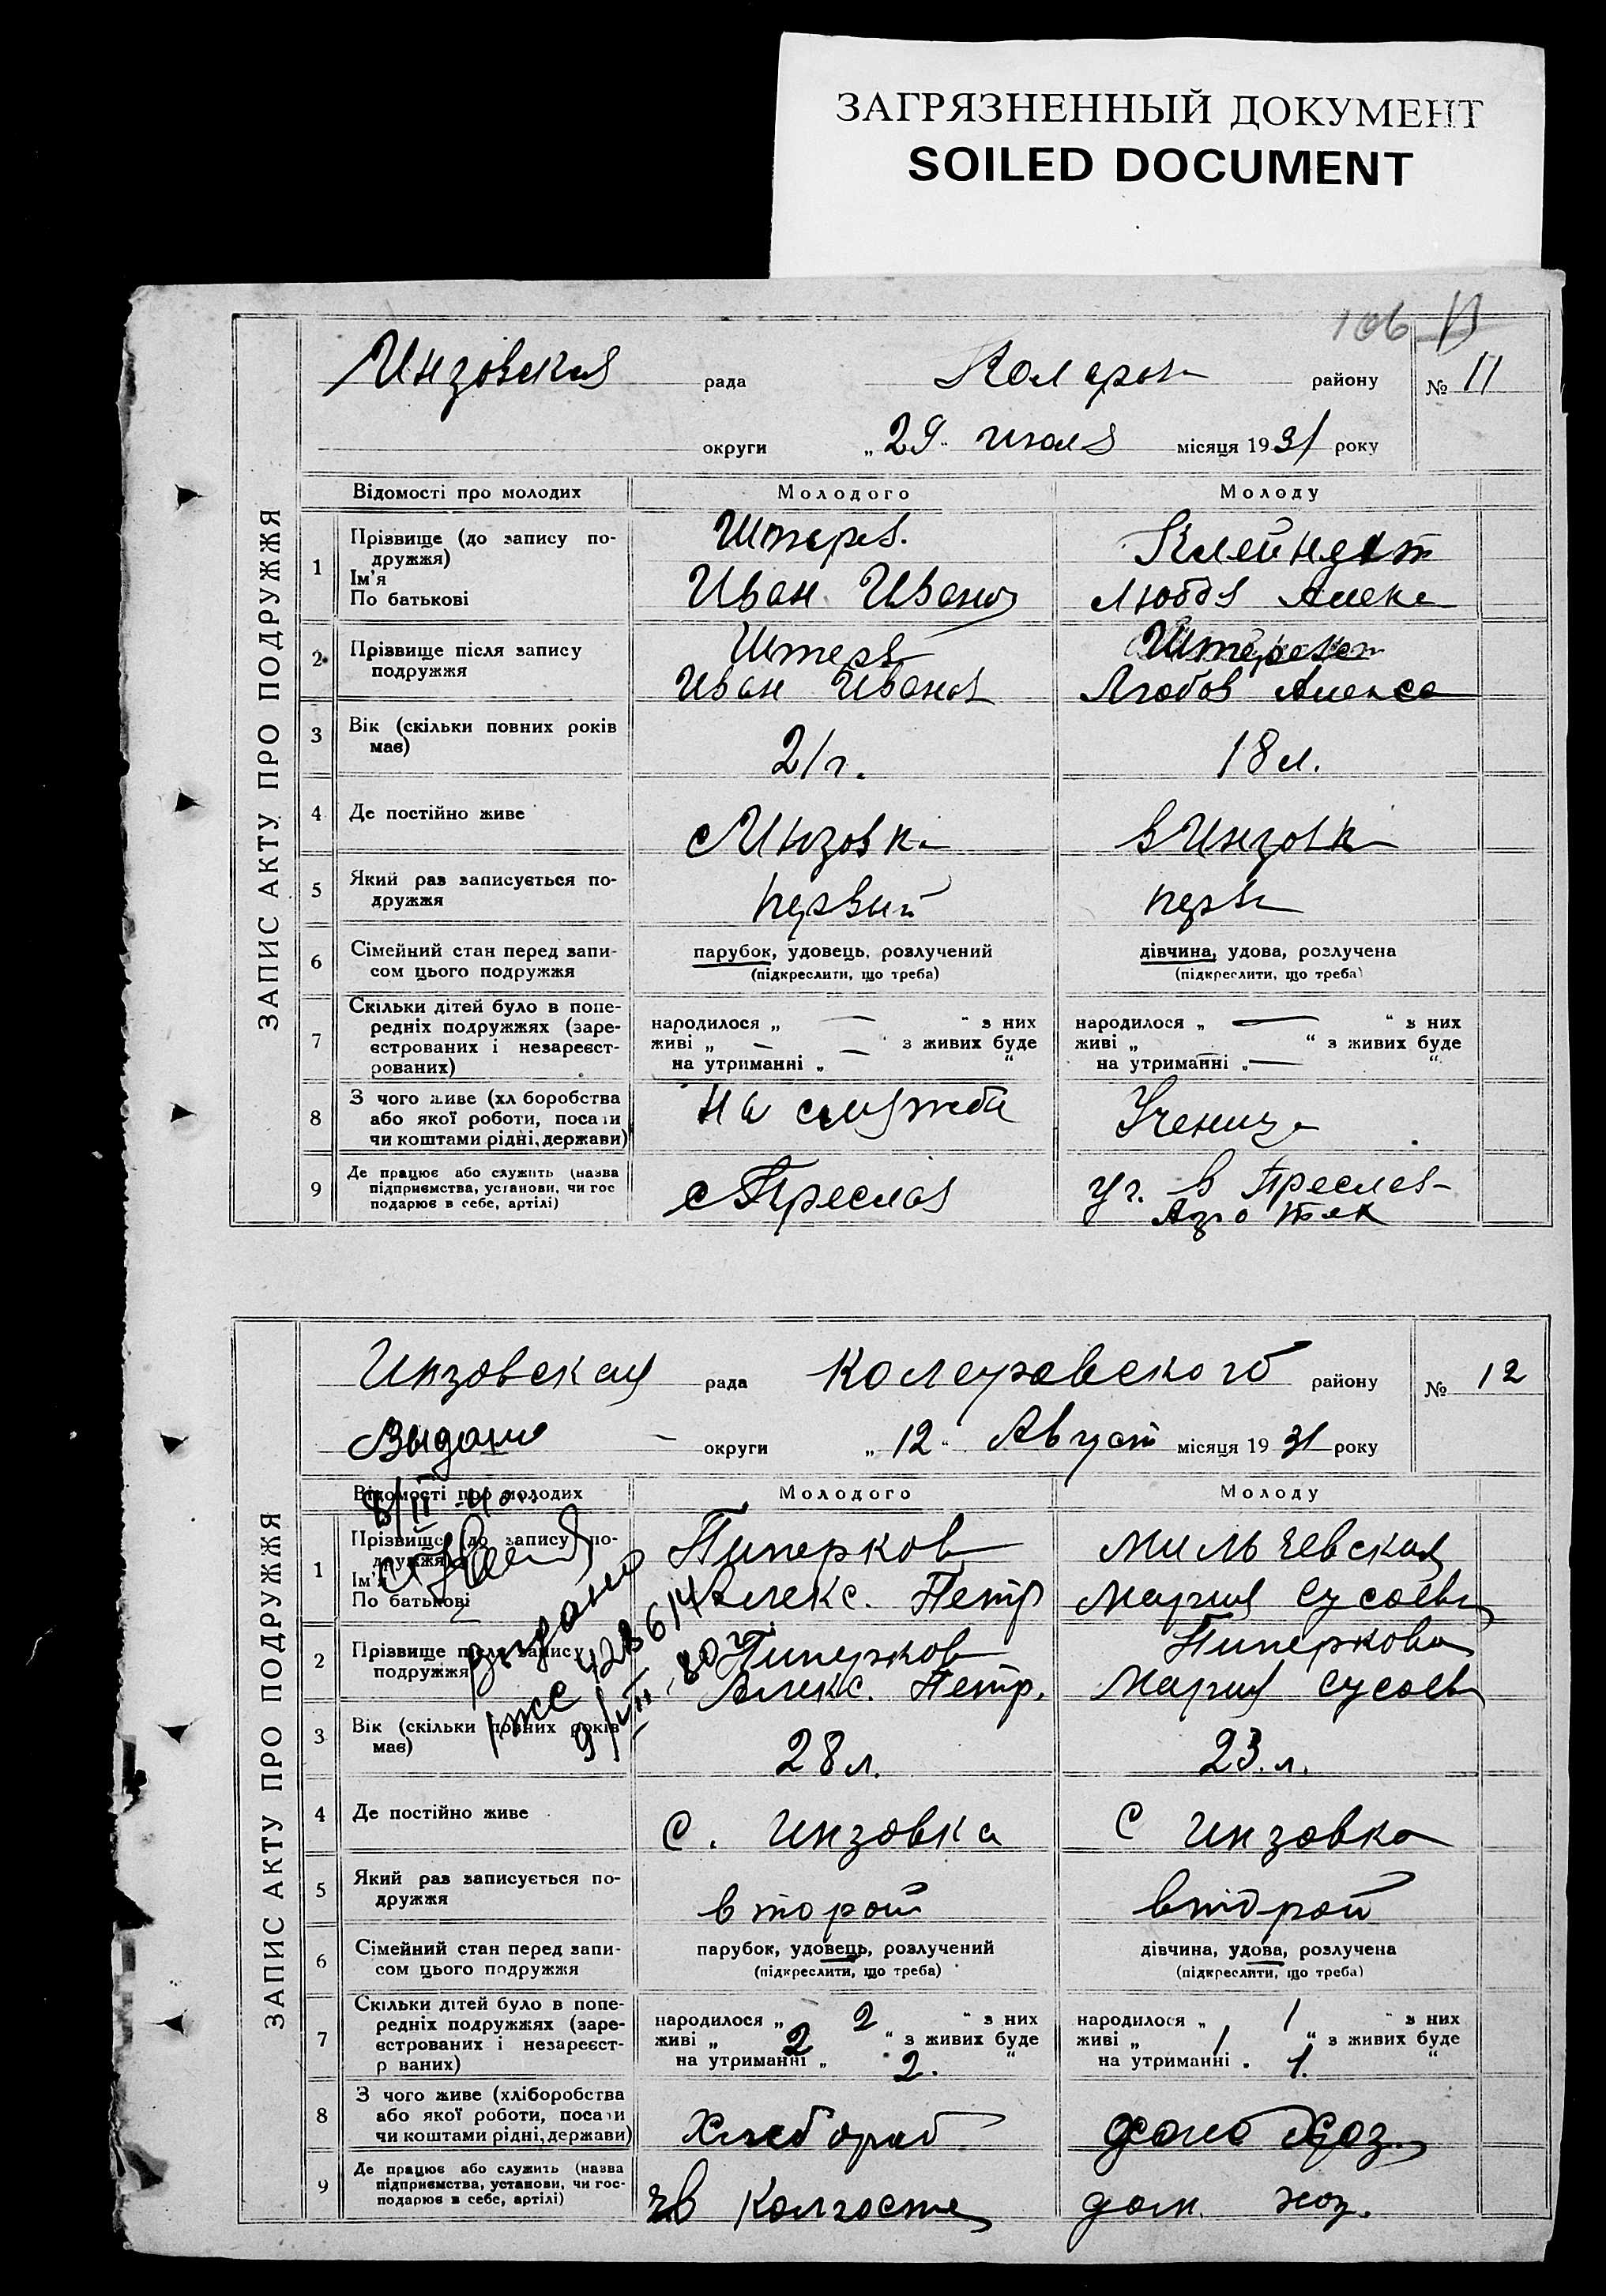 ЗАГРЯЗНЕННЫЙ ДОКУМЕНТ
SOILED DOCUMENT
106
ЗАПИС АКТУ ПРО ПОДРУЖЖЯ
Инзовская рада Коларов району № 11
округи „29" июля місяця 1931 року
Відомості про молодих Молодого Молоду
1 Прізвище (до запису по-
дружжя)
Ім'я
По батькові
Штерев.
Иван Иванов
Любов Алекс
2. Прізвище після запису
подружжя
Штерев
Иван Иванов
Любов Алекса
3 Вік (скільки повних років
має)
21 г. 18 л.
4 Де постійно живе
с Инзовка в Инзовк
5 Який раз записується по-
дружжя
первый перв
6 Сімейний стан перед запи-
сом цього подружжя
парубок, удовець, розлучений
(підкреслити, що треба)
дівчина, удова, розлучена
(підкреслити, що треба)
7 Скільки дітей було в попе-
редніх подружжях (заре-
єстрованих і незареєст-
рованих)
народилося „ — " з них
живі „ — " з живих буде
на утриманні „ — "
народилося „ — " з них
живі „ — " з живих буде
на утриманні „ — "
8 З чого живе (хл боробства
або якої роботи, посади
чи коштами рідні, держави)
На службе Ученица
9 Де працює або служить (назва
підприємства, установи, чи гос
подарює в себе, артілі)
с Преслав
уч. в Преслав-
Агро тех
ЗАПИС АКТУ ПРО ПОДРУЖЖЯ
Инзовская рада Коларовского району № 12
Выдано — округи „12" Август місяця 1931 року
Відомості про молодих Молодого Молоду
8/II
1 Прізвище (до запису по-
дружжя)
Ім'я
По батькові
Пиперков
Алекс. Петр
Мильчевская
Мария Сусоевн
выдано
2 Прізвище після запису
подружжя
Пиперков
Алекс. Петр.
Пиперкова
Мария Сусоев
3 Вік (скільки повних років
має)
28 л. 23. л.
4 Де постійно живе
с. Инзовка с Инзовка
5 Який раз записується по-
дружжя
второй второй
6 Сімейний стан перед запи-
сом цього подружжя
парубок, удовець, розлучений
(підкреслити, що треба)
дівчина, удова, розлучена
(підкреслити, що треба)
7 Скільки дітей було в попе-
редніх подружжях (заре-
єстрованих і незареєст-
р ваних)
народилося „ 2 " з них
живі „ 2 " з живих буде
на утриманні „ 2. "
народилося „ 1 " з них
живі „ 1 " з живих буде
на утриманні „ 1. "
8 З чого живе (хліборобства
або якої роботи, посади
чи коштами рідні, держави)
Хлебороб домо хоз.
9 Де працює або служить (назва
підприємства, установи, чи гос-
подарює в себе, артілі)
в колгоспе дом. хоз.